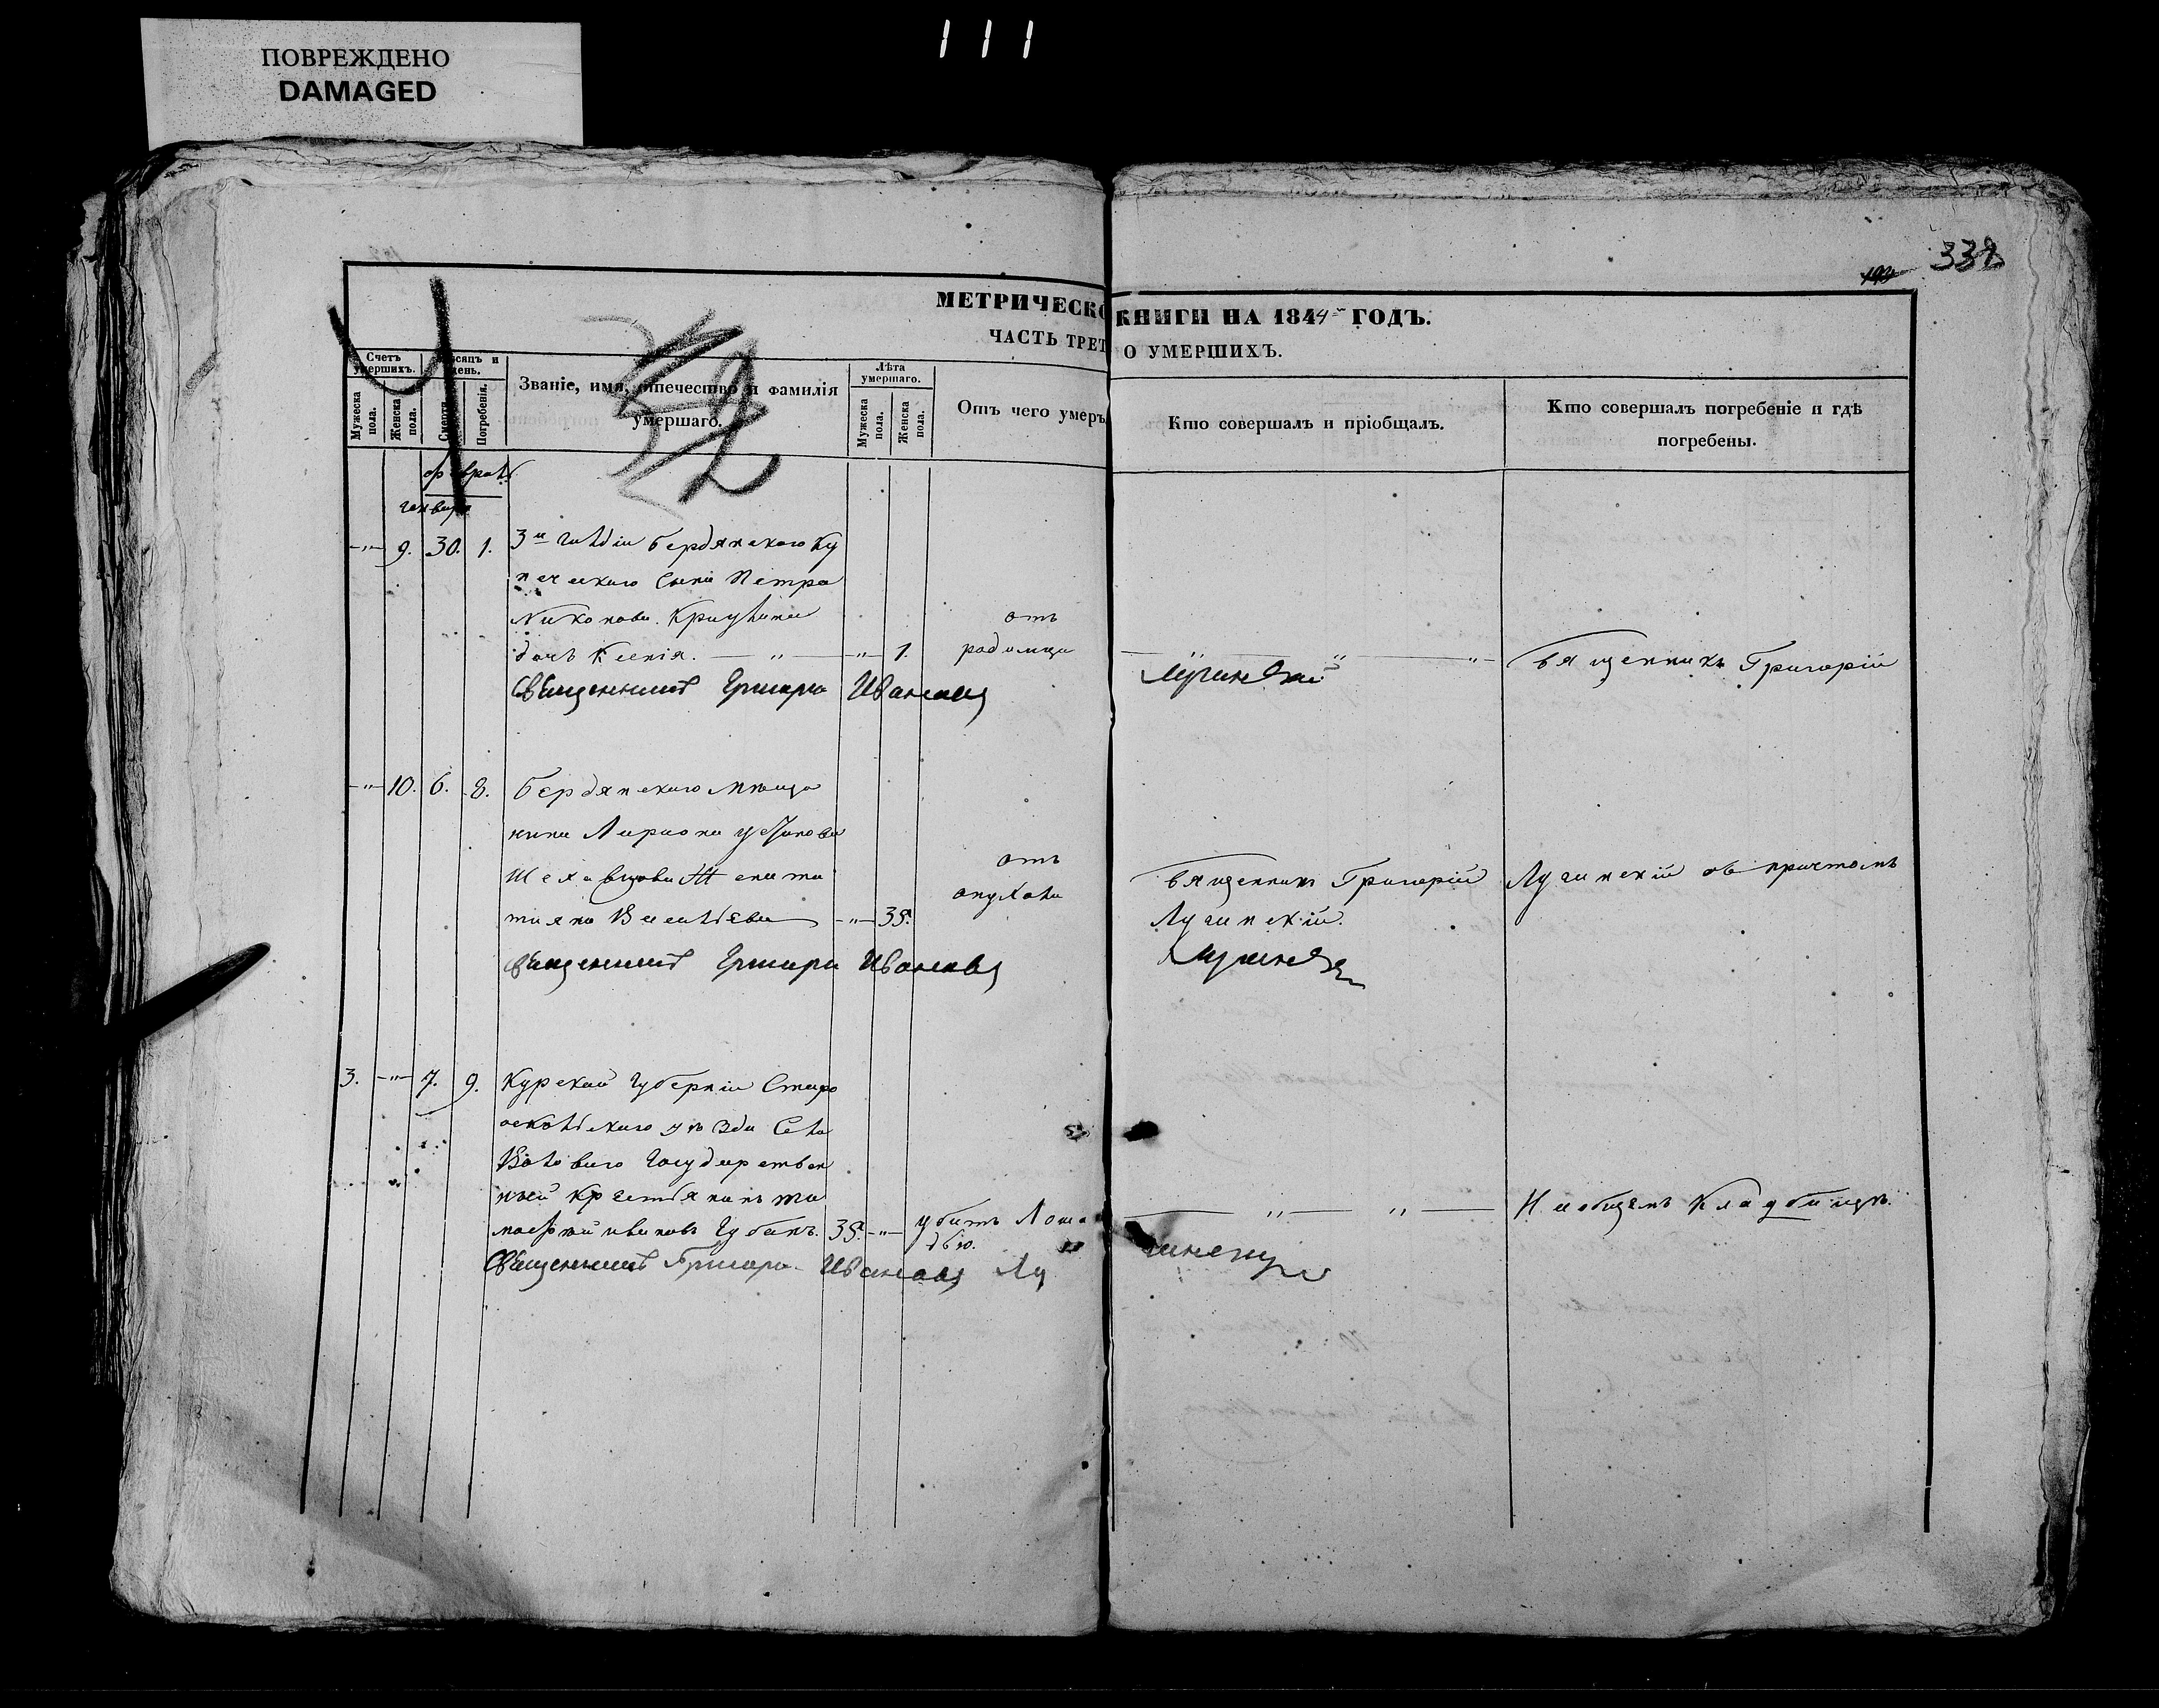 ПОВРЕЖДЕНО
DAMAGED
111
338
193
МЕТРИЧЕСКО КНИГИ НА 1844 ГОДЪ.
ЧАСТЬ ТРЕТ О УМЕРШИХЪ.
Счетъ умершихъ.
Мужеска пола.
Женска пола.
Мѣсяцъ и день.
Смерти.
Погребенія.
Званіе, имя, отечество и фамилія умершаго.
Лѣта умершаго.
Мужеска пола.
Женска пола.
Отъ чего умеръ
Кто совершалъ и пріобщалъ.
Кто совершалъ погребеніе и гдѣ погребены.
февраль
генваря
-"- 9. 30. 1. 3й гильдіи Бердянскаго Ку
печескаго сына Петра
Никонова
отъ
дочь Ксенія. -"- -"- 1. родимца -"- -"- Священникъ Григорій
Священникъ Григорій Ивановъ Лучинскій
-"- 10. 6. 8. Бердянскаго мѣща
нина Лариона Устинова
отъ
жена Та
тіяна Васильева -"- 35. опухоли
Священникъ Григорій Лучинскій съ причтомъ
Лучинскій.
Священникъ Григорій Ивановъ Лучинскій
3. -"- 7. 9. Курской губерніи Старо
оскольскаго уѣзда села
государствен
ный крестьянинъ Ти
мофей Ивановъ Губанъ. 35. -"- убитъ лоша
дью.
-"- -"- На общемъ кладбищѣ.
Священникъ Григорій Ивановъ Лу чинскій